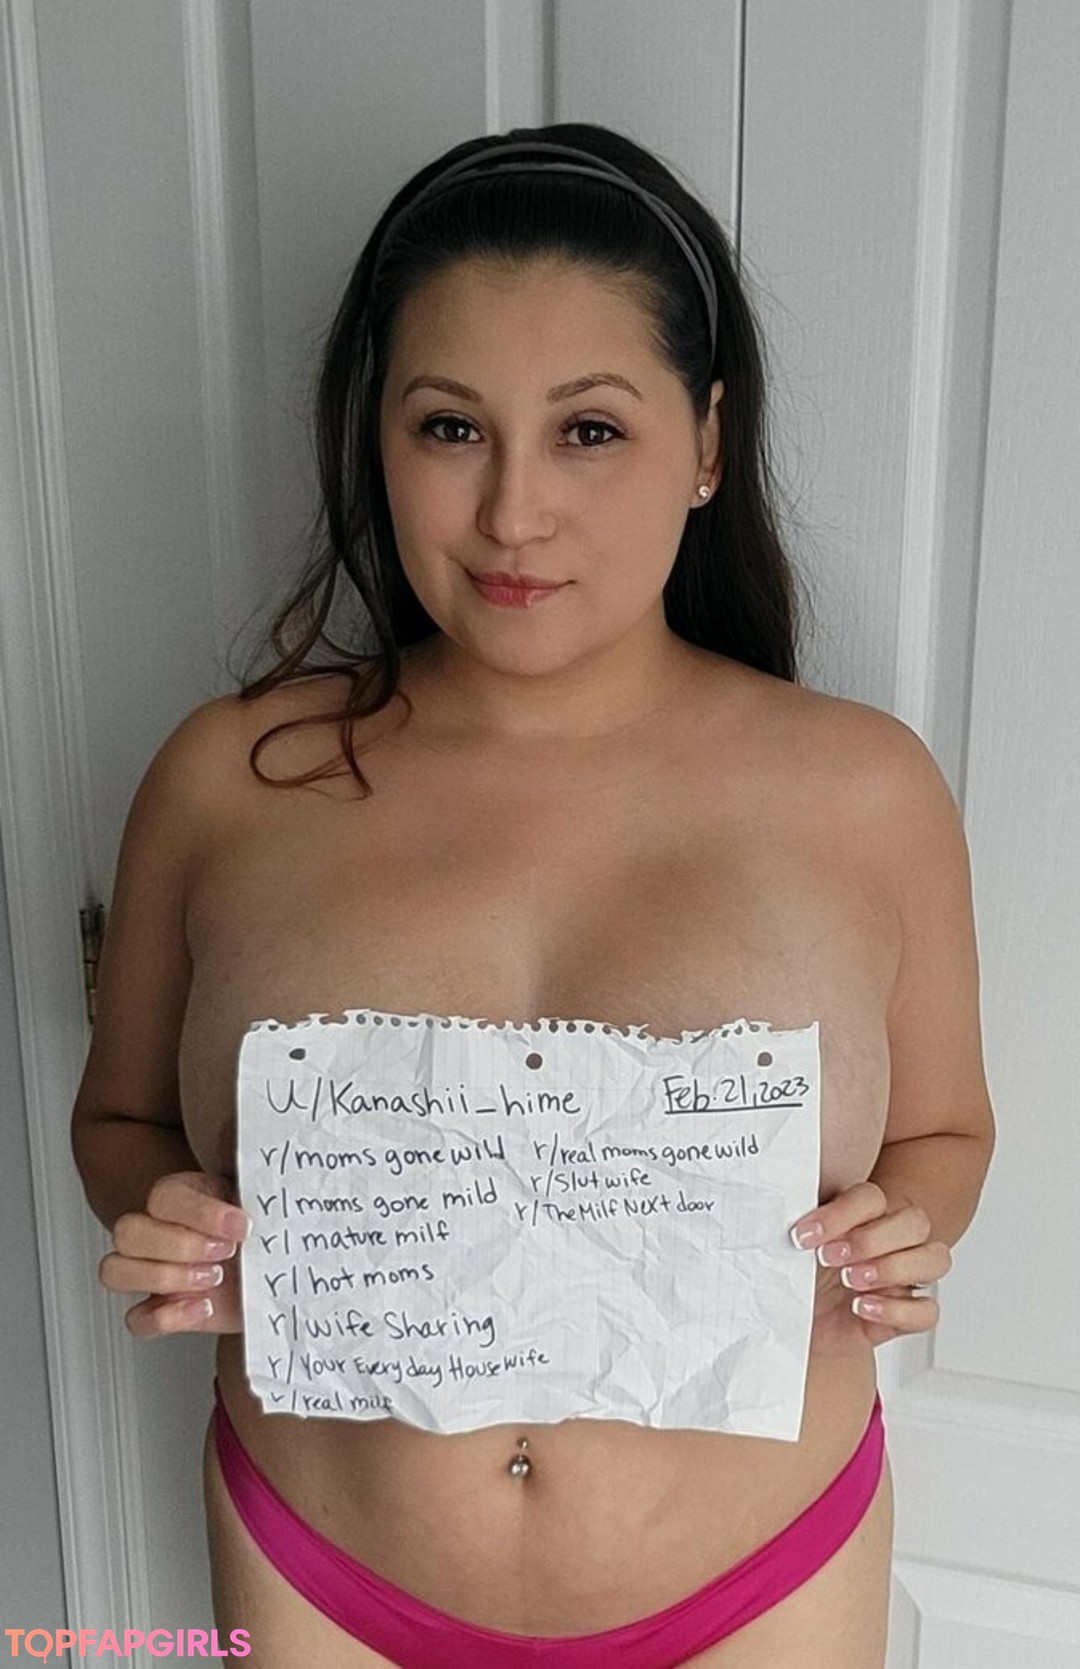 U/Kanashii_hime Feb. 21, 2023
r/moms gone wild
r/moms gone mild
r/ mature milf
r/hot moms
r/wife Sharing
r/Your Everyday Housewife
r/real milf
r/real moms gone wild
r/Slut wife
r/TheMilf Next door
TOPFAPGIRLS